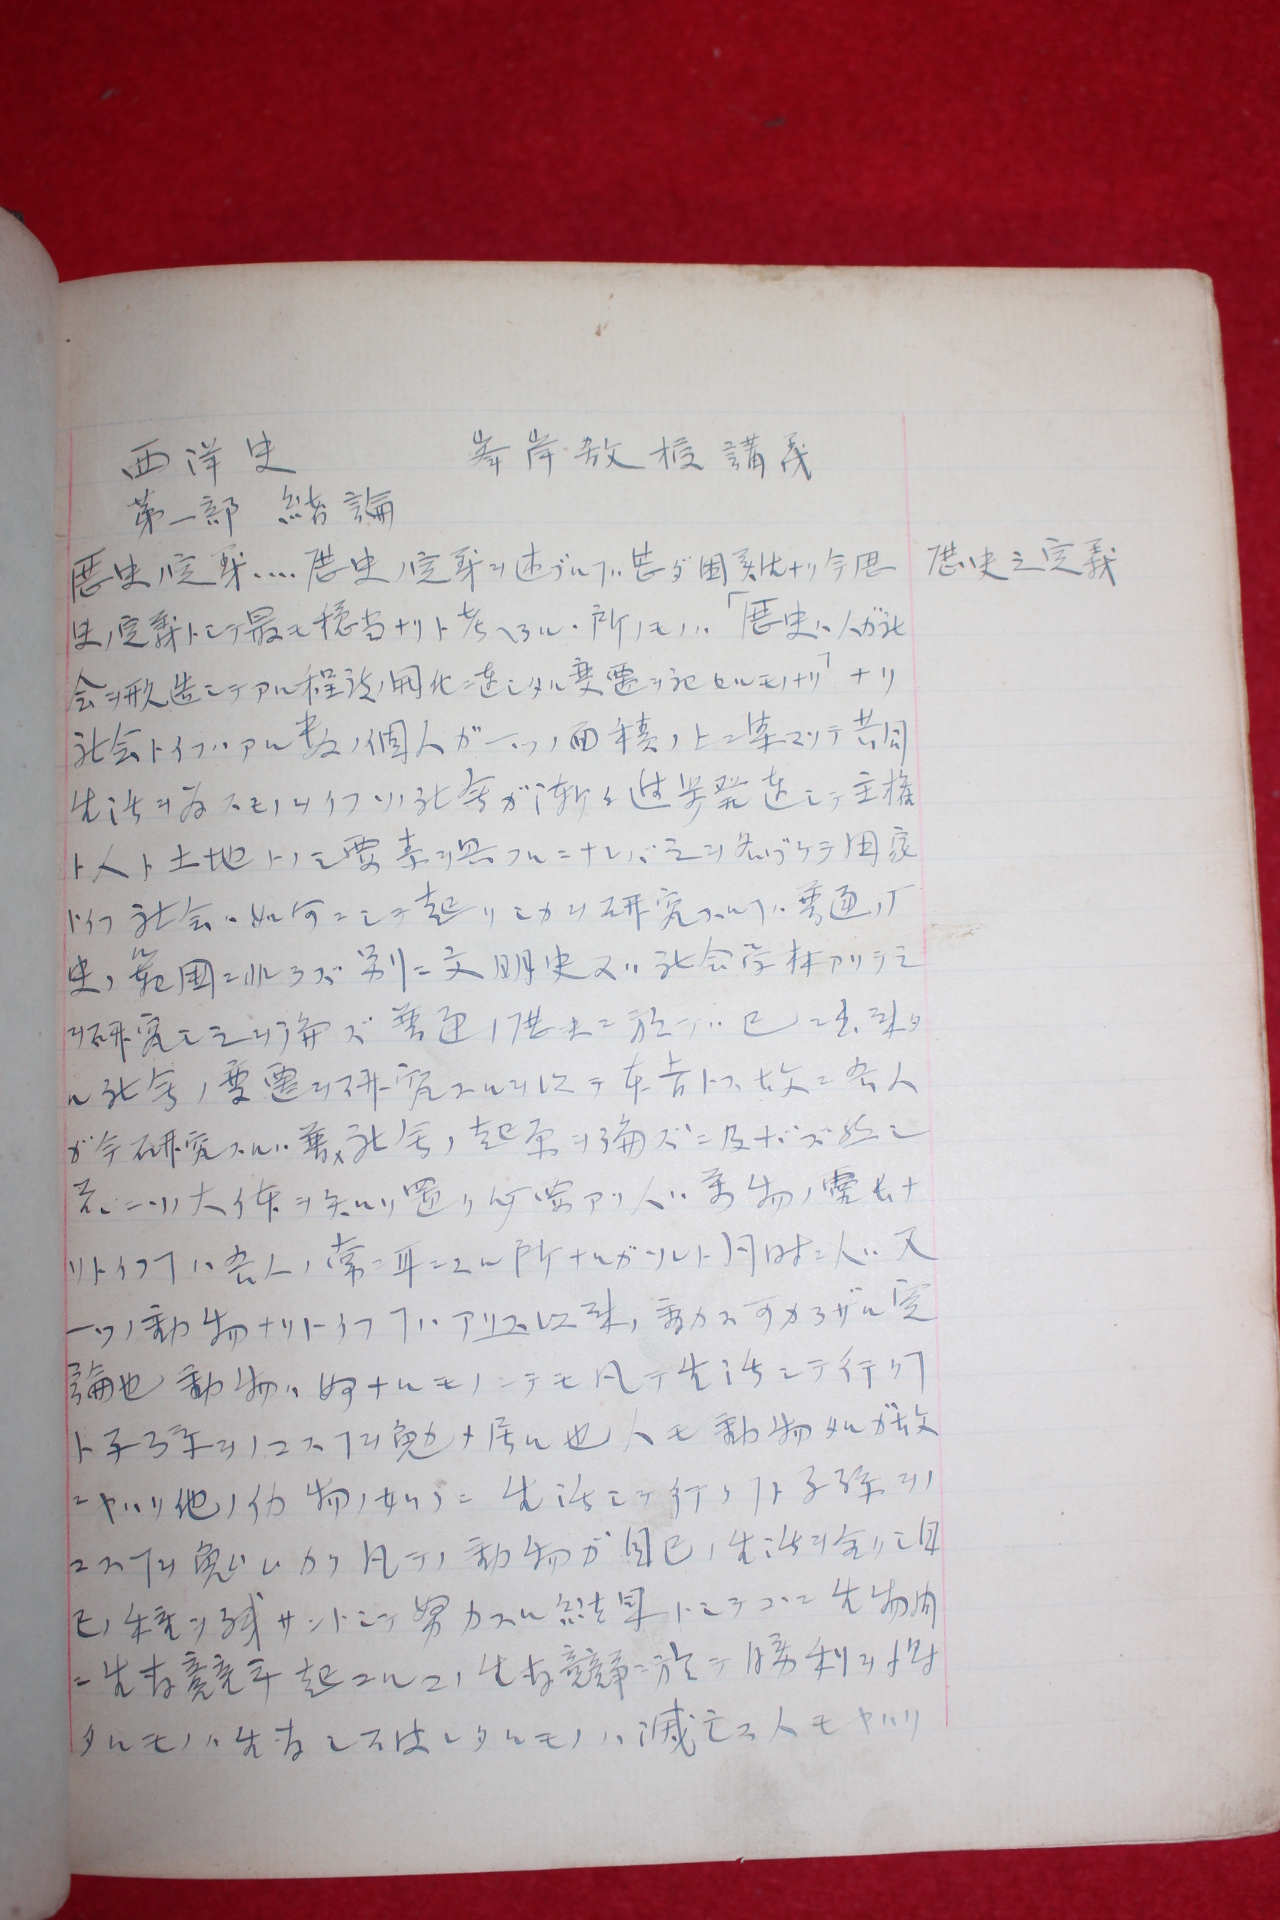 西洋史 峯岸教授講義
第一部 緒論
歴史ノ定義‥‥歴史ノ定義ヲ述ブルヿハ甚ダ困難ナリ今歴
歴史之定義
史ノ定義トシテ最モ穏当ナリト考ヘラルヽ所ノモノハ「歴史ハ人ガ社
会ヲ形造シテアル程度ノ開化ニ達シタル変遷ヲ記セルモノナリ」ナリ
社会トイフハアル数ノ個人ガ一ツノ面積ノ上ニ集マツテ共同
生活ヲ為スモノヲイフソノ社会ガ漸々進歩発達シテ主権
ト人ト土地トノ三要素ヲ具フルニナレバ之ヲ名ヅケテ国家
トイフ社会ハ如何ニシテ起リシカヲ研究スルヿハ普通ノ
史ノ範囲ニ非ラズ別ニ文明史又ハ社会学ナドアリテ之
ヲ研究シ之ヲ論ズ普通ノ歴史ニ於テハ已ニ出来タ
ル社会ノ変遷ヲ研究スルヲ以テ本旨トス故ニ吾人
ガ今研究スルハ社会ノ起原ヲ論ズニ及バズ然シ
ソノ大体ヲ知リ置ク必要アリ人ハ万物ノ霊長ナ
リトイフヿハ吾人ノ常ニ耳ニスル所ナルガソレト同時ニ人ハ又
一ツノ動物ナリトイフヿハアリス以来ノ動カスベカラザル定
論也 動物ハ如何ナルモノニテモ凡テ生活シテ行クヿ
ト子孫ヲノコスヿヲ勉メ居ル也人モ動物ナルガ故
ニヤハリ他ノ動物ノ如クニ生活シテ行クヿト子孫ヲノ
コスヿヲ勉ム 凡テノ動物ガ自己ノ生活ヲ全ウシ自
己ノ種ヲ残サントシテ努力スル結果トシテコヽニ生物間
ニ生存競争起ル コノ生存競争ニ於テ勝利ヲ得
タルモノハ生存シ タルモノハ滅亡ス人モヤハリ